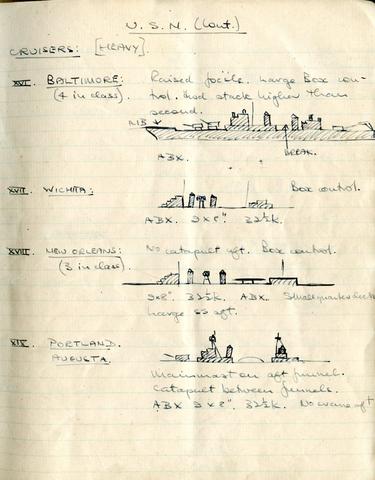 U.S.N. (Cont.)
CRUISERS: [HEAVY].
XVI. BALTIMORE: Raised fo'c'sle. Large Box con-
(4 in class). trol. 2nd stack higher than
second.
NIB
ABX. BREAK.
XVII. WICHITA: Box control.
ABX. 9x8". 32½k.
XVIII. NEW ORLEANS: No catapult aft. Box control.
(3 in class).
9x8". 32½k. ABX. Small quarterdeck
Large SS aft.
XIX. PORTLAND.
AUGUSTA.
Mainmast on aft funnel.
Catapult between funnels.
ABX 9x8". 32½k. No crane aft